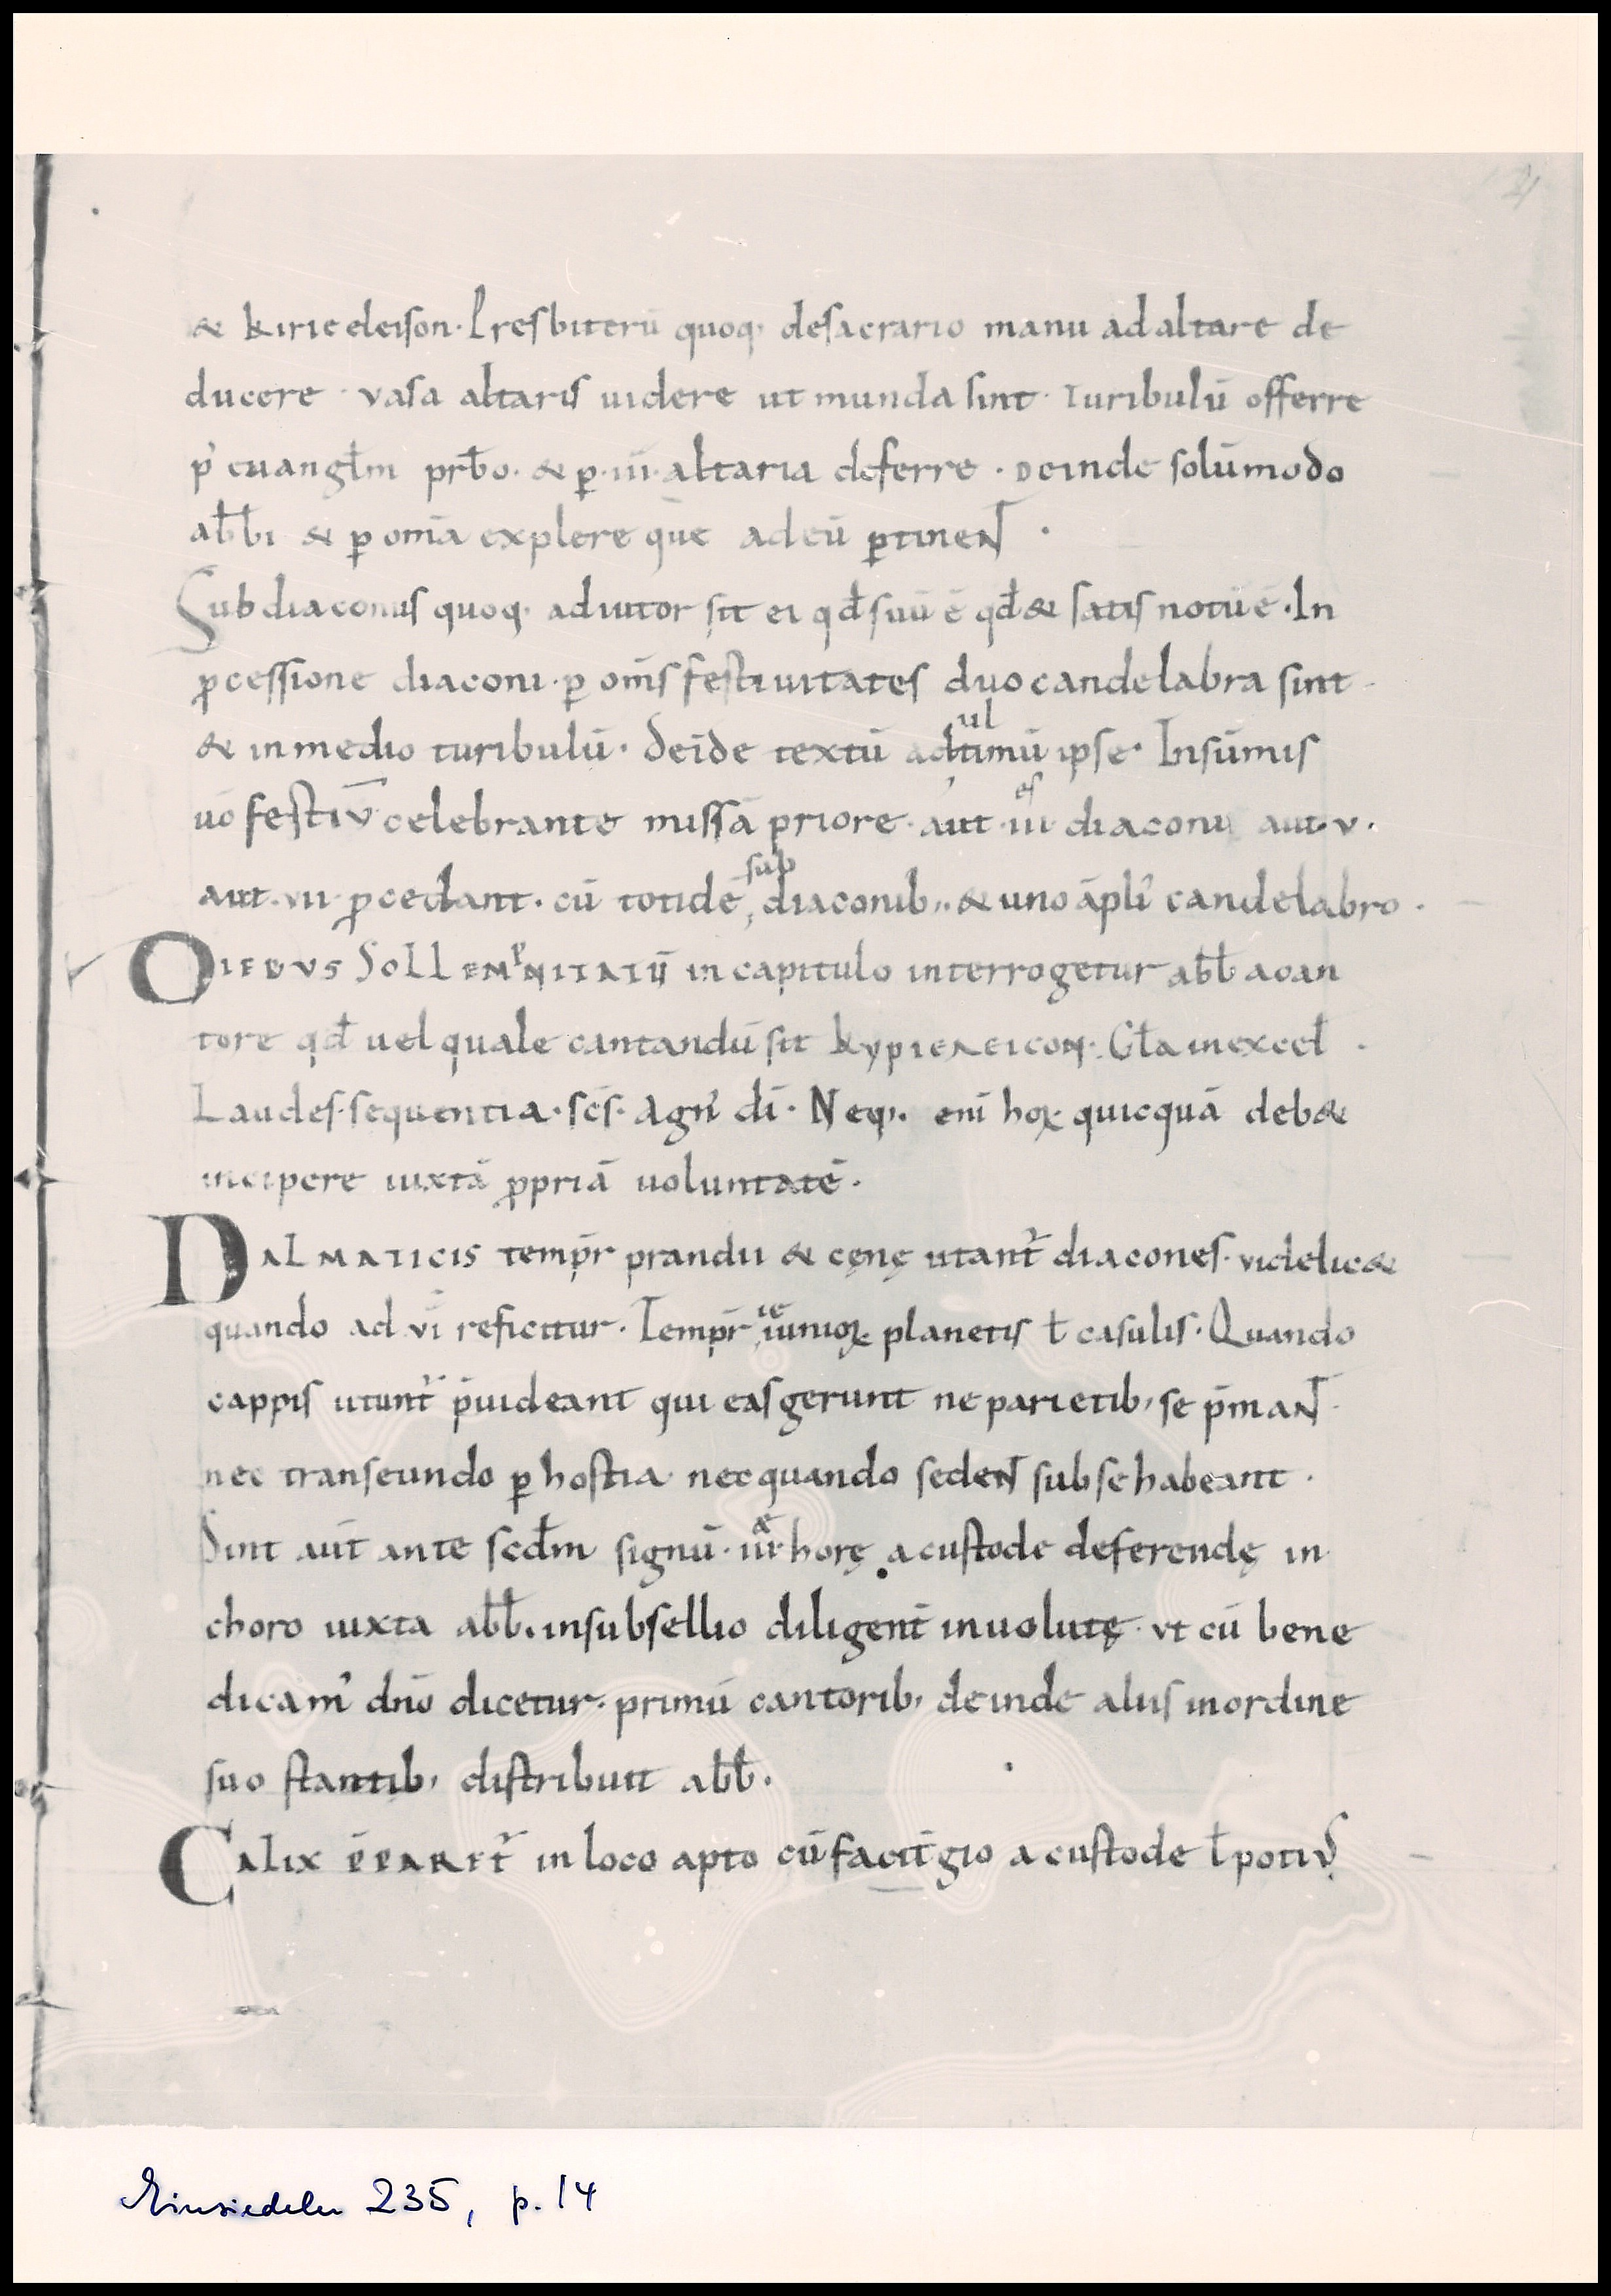 & kirieeleison. Presbiterū quoq; desacrario manu adaltare de
ducere. vasa altaris uidere ut mundasint. Turibulū offerre
p' euangl̄m prb̄o. & ꝑ .iii. altaria deferre. Deinde solūmodo
abb̄i & ꝑ om̄ia explere que adeū ꝑtineN̄T.
Subdiaconus quoq; adiutor sit ei qd̄ suū ē qd̄ & satis notū ē. In
ꝓcessione diaconi. ꝑ om̄s festiuitates duo candelabra sint
& inmedio turibulū. deīde textū adultimū ipse. Insūmis
uō festiv̄ celebrante missā priore. aut .iii. es diaconi aut .v.
aut .vii. ꝓcedant. cū totidē subdiaconib;. & uno āpli' candelabro.
ODIEBUS SOLLEMPNITATŪ incapitulo interrogetur abb̄ acan
tore qd̄ uel quale cantandū sit kypieleicon. Gl̄a inexcel̄.
Laudes. sequentia. sc̄s. Agn' dī. Neq;. enī hoꝝ quicquā deb&
incipere iuxtā ꝓpriā uoluntatē.
DALMATICIS temp̄r prandii & cęnę utant̄ diacones. videlic&
quando ad vī reficitur. Temp̄r ieiunioꝝ planetis ł casulis. Quando
cappis utunt̄ p̄uideant qui eas gerunt ne parietib; se p̄maNT.
nec transeundo ꝑ hostia. nec quando sedeNT sub se habeant.
Sint aut̄ ante scd̄m signū .iii. ae horę a custode deferendę in
choro iuxta abb̄. insubsellio diligent̄ inuolutę. vt cū bene
dicam' dn̄o dicetur. primū cantorib; deinde aliis inordine
suo stantib; distribuit abb̄.
CALIX P̄PARET̄ inloco apto cū facit̄gio a custode ł potiuS
Einsiedeln 235, p. 14